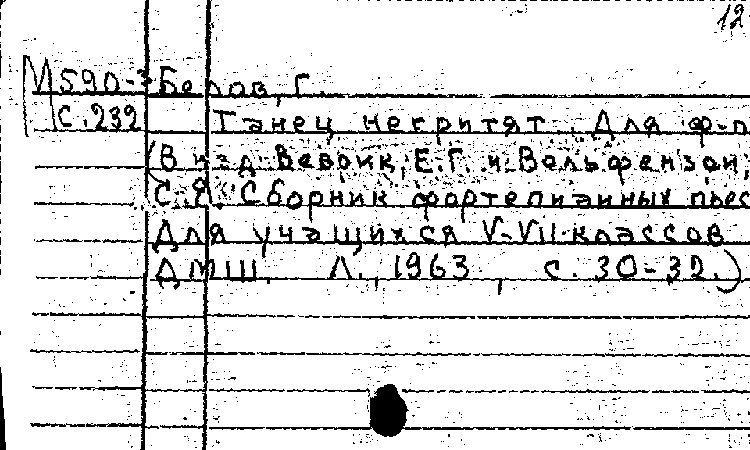 12
М590-3 Белов, Г.
с. 232 Танец негритят. Для ф-п
(В изд: Веврик, Е.Г. и Вольфензон,
С.Я. Сборник фортепианных пьес
Для учащихся V-VII классов
ДМШ. Л., 1963, с. 30-32.)